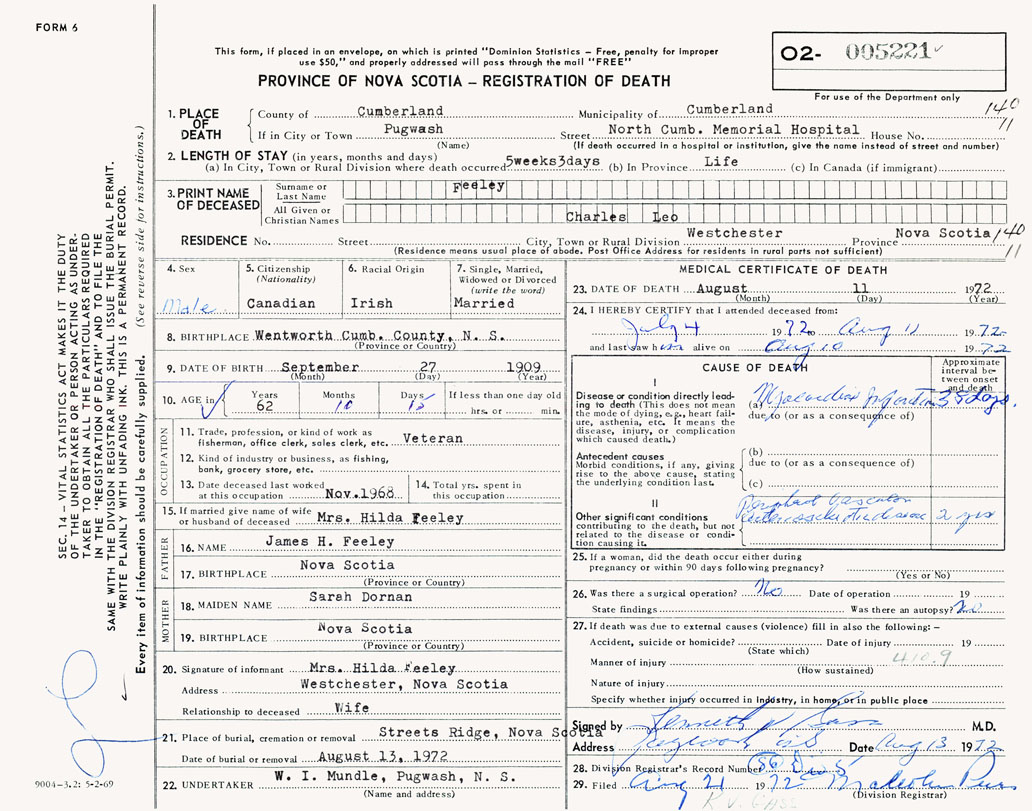 FORM 6
This form, if placed in an envelope, on which is printed "Dominion Statistics – Free, penalty for improper
use $50," and properly addressed will pass through the mail "FREE"
PROVINCE OF NOVA SCOTIA – REGISTRATION OF DEATH
O2- 005221
For use of the Department only
140
11
1. PLACE OF DEATH
County of Cumberland Municipality of Cumberland
If in City or Town Pugwash Street North Cumb. Memorial Hospital House No.
(Name) (If death occurred in a hospital or institution, give the name instead of street and number)
2. LENGTH OF STAY (in years, months and days)
(a) In City, Town or Rural Division where death occurred 5weeks3days (b) In Province Life (c) In Canada (if immigrant)
3. PRINT NAME OF DECEASED
Surname or Last Name Feeley
All Given or Christian Names Charles Leo
RESIDENCE No. Street City, Town or Rural Division Westchester Province Nova Scotia 140
11
(Residence means usual place of abode. Post Office Address for residents in rural parts not sufficient)
4. Sex
Male
5. Citizenship
(Nationality)
Canadian
6. Racial Origin
Irish
7. Single, Married,
Widowed or Divorced
(write the word)
Married
8. BIRTHPLACE Wentworth Cumb. County, N. S.
(Province or Country)
9. DATE OF BIRTH September 27 1909
(Month) (Day) (Year)
10. AGE in Years Months Days If less than one day old
62 10 15 hrs. or min.
OCCUPATION
11. Trade, profession, or kind of work as
fisherman, office clerk, sales clerk, etc. Veteran
12. Kind of industry or business, as fishing,
bank, grocery store, etc.
13. Date deceased last worked
at this occupation Nov.1968
14. Total yrs. spent in
this occupation
15. If married give name of wife
or husband of deceased Mrs. Hilda Feeley
FATHER
16. NAME James H. Feeley
17. BIRTHPLACE Nova Scotia
(Province or Country)
MOTHER
18. MAIDEN NAME Sarah Dornan
19. BIRTHPLACE Nova Scotia
(Province or Country)
20. Signature of informant Mrs. Hilda Feeley
Address Westchester, Nova Scotia
Relationship to deceased Wife
21. Place of burial, cremation or removal Streets Ridge, Nova Scotia
Date of burial or removal August 13, 1972
22. UNDERTAKER W. I. Mundle, Pugwash, N. S.
(Name and address)
MEDICAL CERTIFICATE OF DEATH
23. DATE OF DEATH August 11 1972
(Month) (Day) (Year)
24. I HEREBY CERTIFY that I attended deceased from:
July 4 1972 to Aug 11 1972
and last saw him alive on Aug 10 1972
CAUSE OF DEATH
Approximate
interval be-
tween onset
and death
I
Disease or condition directly lead-
ing to death (This does not mean
the mode of dying, e.g., heart fail-
ure, asthenia, etc. It means the
disease, injury, or complication
which caused death.)
(a) Myocardial Infarction 38 days.
due to (or as a consequence of)
Antecedent causes
Morbid conditions, if any, giving
rise to the above cause, stating
the underlying condition last.
(b)
due to (or as a consequence of)
(c)
II
Other significant conditions
contributing to the death, but not
related to the disease or condi-
tion causing it.
Peripheral Vascular
arteriosclerotic disease 2 yrs
25. If a woman, did the death occur either during
pregnancy or within 90 days following pregnancy?
(Yes or No)
26. Was there a surgical operation? No Date of operation 19
State findings Was there an autopsy? No
27. If death was due to external causes (violence) fill in also the following: –
Accident, suicide or homicide? Date of injury 19
(State which)
Manner of injury 410.9
(How sustained)
Nature of injury
Specify whether injury occurred in Industry, in home, or in public place
Signed by Kenneth N Gass M.D.
Address Pugwash N.S Date Aug 13 1972
28. Division Registrar's Record Number
29. Filed Aug 21 1972 Malcolm
(Division Registrar)
R.V. GASS
SEC. 14 – VITAL STATISTICS ACT MAKES IT THE DUTY
OF THE UNDERTAKER OR PERSON ACTING AS UNDER-
TAKER TO OBTAIN ALL THE PARTICULARS REQUIRED
IN THE "REGISTRATION OF DEATH" AND TO FILE THE
SAME WITH THE DIVISION REGISTRAR WHO SHALL ISSUE THE BURIAL PERMIT.
WRITE PLAINLY WITH UNFADING INK. THIS IS A PERMANENT RECORD.
Every item of information should be carefully supplied. (See reverse side for instructions.)
9004–3.2: 5-2-69